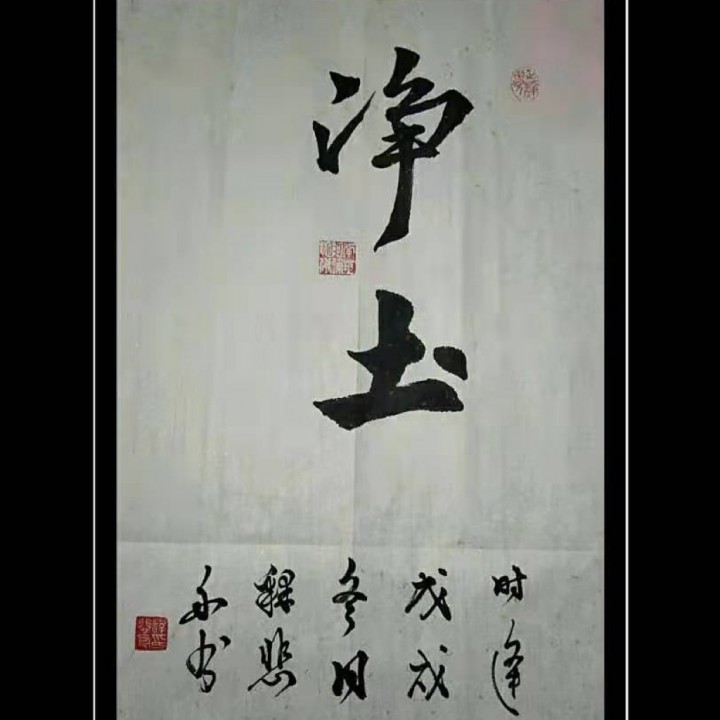 净土
时逢
戊戌
冬月
释悲
禾书